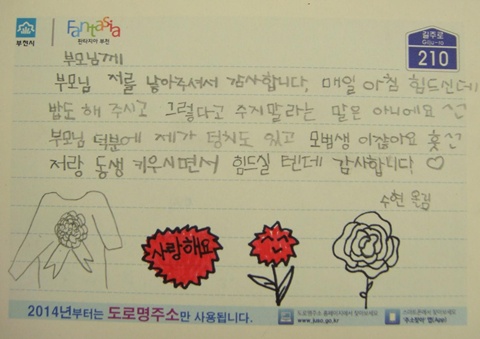 부천시
Fantasia
판타지아 부천
길주로
Gilju-ro
210
부모님께
부모님 저를 낳아주셔서 감사합니다, 매일 아침 힘드신데
밥도 해 주시고 그렇다고 주지말라는 말은 아니에요 ^^
부모님 덕분에 제가 덩치도 있고 모범생 이잖아요 훗^^
저랑 동생 키우시면서 힘드실 텐데 감사합니다 ♡
수현 올림
사랑해요
2014년부터는 도로명주소만 사용됩니다.
도로명주소 홈페이지에서 찾아보세요
www.juso.go.kr
스마트폰에서 찾아보세요
'주소찾아' 앱(App)